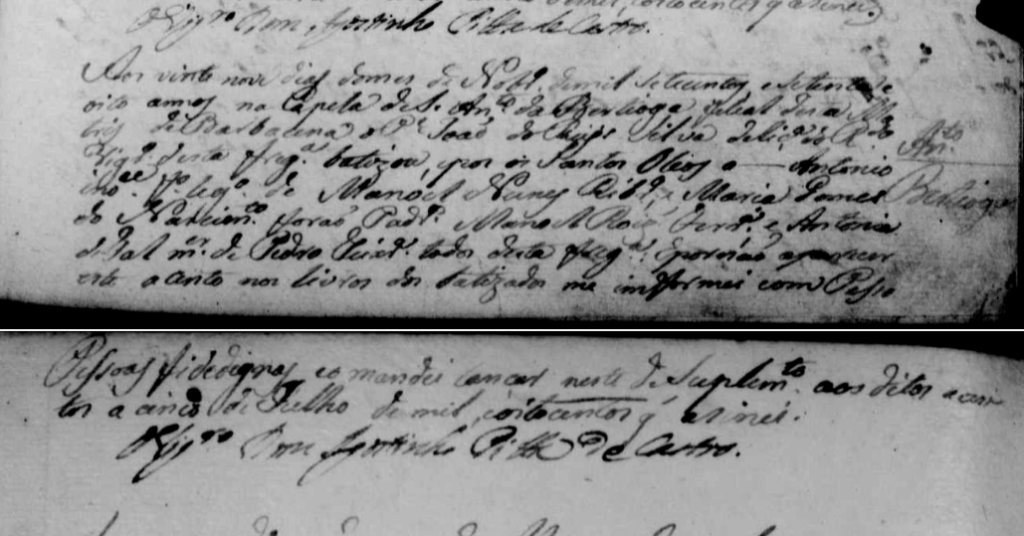 O Vigr.º Bom. Agostinho Pitta de Castro.
Aos vinte nove dias do mes de Nobr. de mil setecentos e setenta e
oito annos na Capela de S. Anᵗº da Bertioga filial desta Ma
tris de Barbacena o Pᵉ João da Silva de lic.ª do R.do
Vigr.º desta freg.ª batizou, e por os Santos Oleos a — Antonio
inoᶜᵉ fº legº de Manoel Nunes Ribrº, e Maria Gomes
do Nascim.to forão Padr.ˢ Manoel Roiz e Antonia
de Tal m.er de Pedro Teixr.ª todos desta freg.ª e por não aparecer
este acento nos livros dos batizados me imformei com Pesso
An.to
Bertioga
Pessoas fidedignas e o mandei lançar neste de Suplem.to aos ditos acen
tos a cinco de Julho de mil, e oitocentos q' asinei.
O Vigr.º Bom. Agostinho Pitta de Castro.